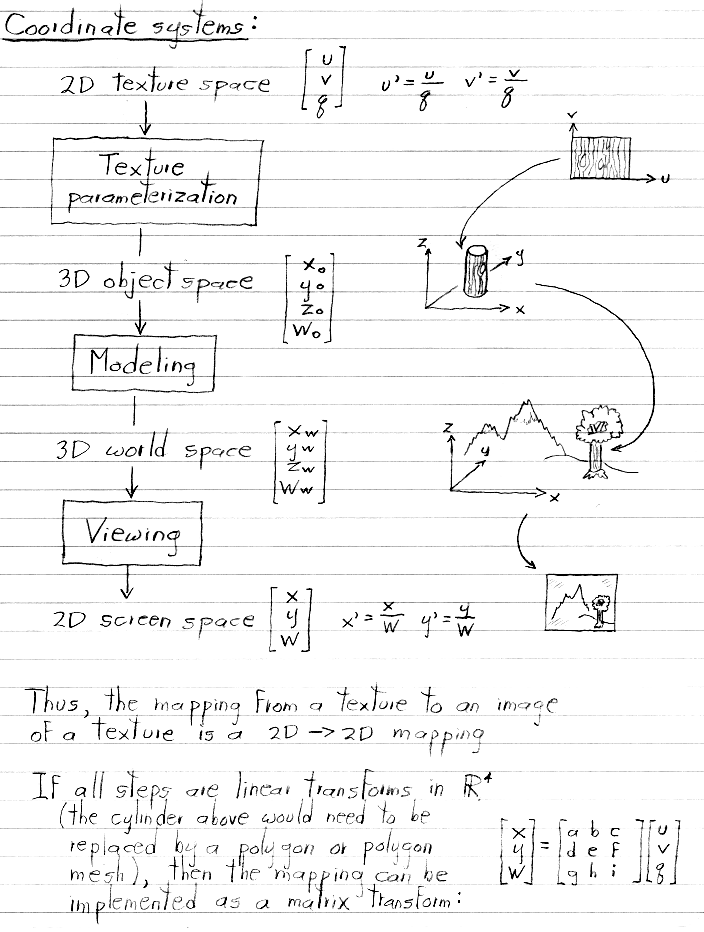 Coordinate systems:
2D texture space [u v q] u' = u/q v' = v/q
Texture
parameterization
v
u
3D object space [xo yo zo wo]
z
y
x
Modeling
3D world space [xw yw zw ww]
z
y
x
Viewing
2D screen space [x y w] x' = x/w y' = y/w
Thus, the mapping from a texture to an image
of a texture is a 2D → 2D mapping
If all steps are linear transforms in ℝ⁴
(the cylinder above would need to be
replaced by a polygon or polygon
mesh), then the mapping can be
implemented as a matrix transform:
[x y w] = [a b c d e f g h i] [u v q]